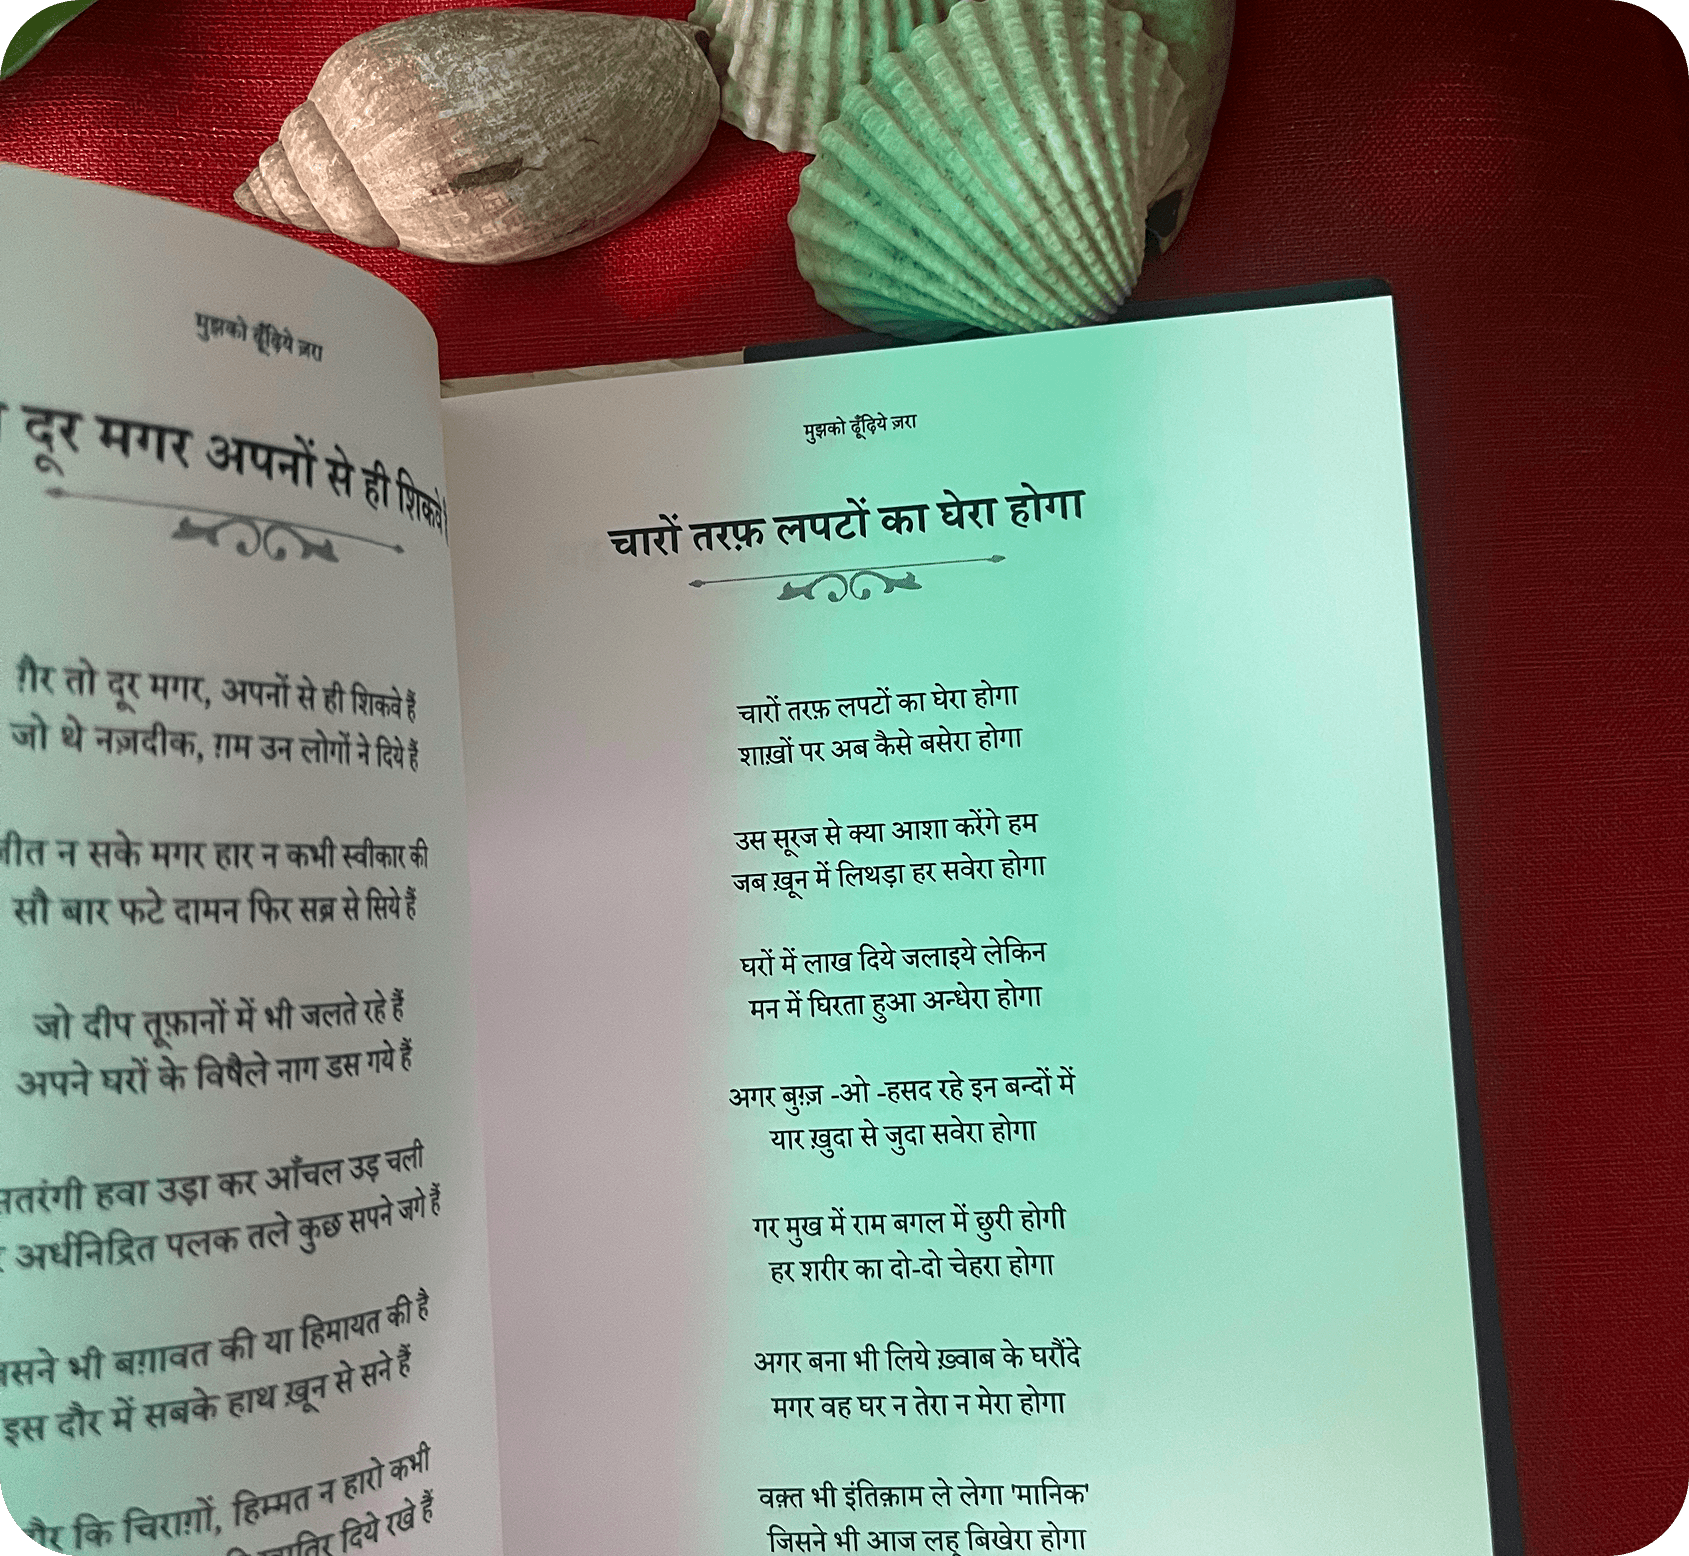 मुझको ढूँढ़िये ज़रा
दूर मगर अपनों से ही शिकवे
तो दूर मगर, अपनों से ही शिकवे हैं
जो थे नज़दीक, ग़म उन लोगों ने दिये हैं
न सके मगर हार न कभी स्वीकार की
सौ बार फटे दामन फिर सब्र से सिये हैं
जो दीप तूफ़ानों में भी जलते रहे हैं
अपने घरों के विषैले नाग डस गये हैं
हवा उड़ा कर आँचल उड़ चली
अर्धनिद्रित पलक तले कुछ सपने जगे हैं
भी बग़ावत की या हिमायत की है
इस दौर में सबके हाथ ख़ून से सने हैं
कि चिराग़ों, हिम्मत न हारो कभी
दिये रखे हैं
मुझको ढूँढ़िये ज़रा
चारों तरफ़ लपटों का घेरा होगा
चारों तरफ़ लपटों का घेरा होगा
शाख़ों पर अब कैसे बसेरा होगा
उस सूरज से क्या आशा करेंगे हम
जब ख़ून में लिथड़ा हर सवेरा होगा
घरों में लाख दिये जलाइये लेकिन
मन में घिरता हुआ अन्धेरा होगा
अगर बुग़्ज़ -ओ -हसद रहे इन बन्दों में
यार ख़ुदा से जुदा सवेरा होगा
गर मुख में राम बगल में छुरी होगी
हर शरीर का दो-दो चेहरा होगा
अगर बना भी लिये ख़्वाब के घरौंदे
मगर वह घर न तेरा न मेरा होगा
वक़्त भी इंतिक़ाम ले लेगा 'मानिक'
जिसने भी आज लहू बिखेरा होगा